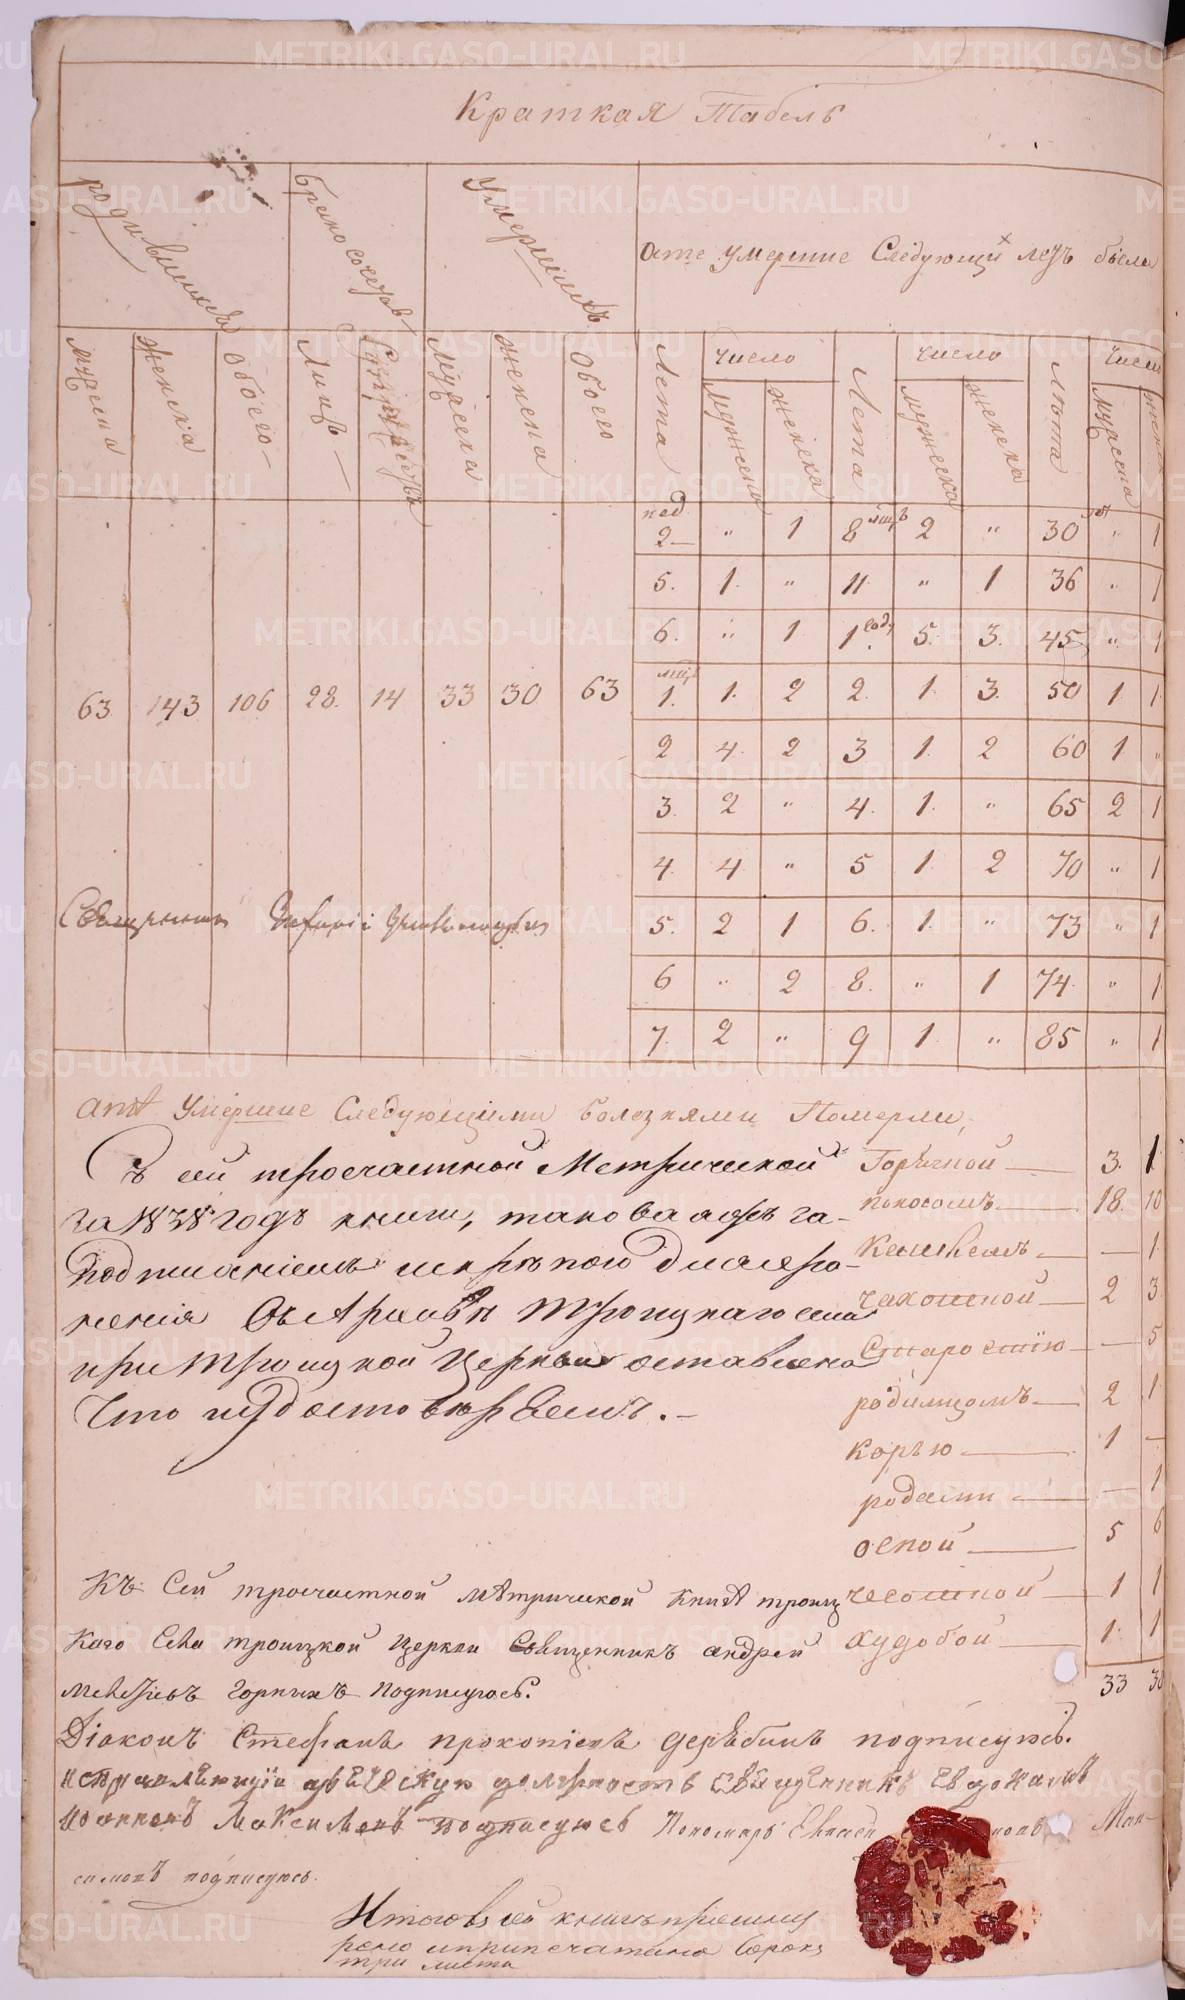 Краткая Табель
родившихся
Бракосочетав
Умершихъ
ате умершие Следующий летъ были
мужска
женска
обоего
Лицъ
мужеска
женска
обоего
Лета
число
мужеска
женска
Лета
число
мужеска
женска
Лѣта
число
мужеска
нед 2 „ 1 8 мцъ 2 „ 30 лет „ 1
5. 1. „ 11. „ 1 36 „ 1
6. „ 1 1 году 5. 3. 45 „ 1
мцъ 1. 1. 2 2. 1. 3. 50 1 1
63 143 106 28. 14 33 30 63
2 4. 2 3 1. 2 60 1 „
3. 2 „ 4. 1. „ 65 2 1
4. 4 „ 5 1. 2 70 „ 1
Священникъ
5. 2 1 6. 1. „ 73 „ 1
6 „ 2 8. „ 1 74 „ 1
7. 2 „ 9 1 „ 85 „ 1
Умершие Следующими болезнями Померли,
Горячкой 3. 1
поносомъ 18. 10
Кашлемъ — 1
чахоткой 2 3
Старостію — 5
родимцомъ 2 1
корью 1 —
родами — 1
оспой 5 6
чесоткой 1 1
худобой 1 1
33 30
Къ сей троечастной Метрической
за 1838 годъ книги, такова яжъ за
подписаніемъ и скрѣпою для хра-
нения въ Архивѣ Троицкаго села
при Троицкой Церкви оставлена
Что и удостовѣряемъ.
Къ Сей троечастной мѣтрической книгѣ троиц
каго Села троицкой церкви Священникъ андрей
Горныхъ подписуюсь.
Діаконъ Стефанъ прокопіевъ дерябинъ подписуюсь.
исправляющій должность священникъ Евдокимъ
иоанновъ Максимовъ подписуюсь Пономарь Мак-
симовъ подписуюсь.
Итого в сей книге прошну
рено и припечатано Сорокъ
три листа
METRIKI.GASO-URAL.RU